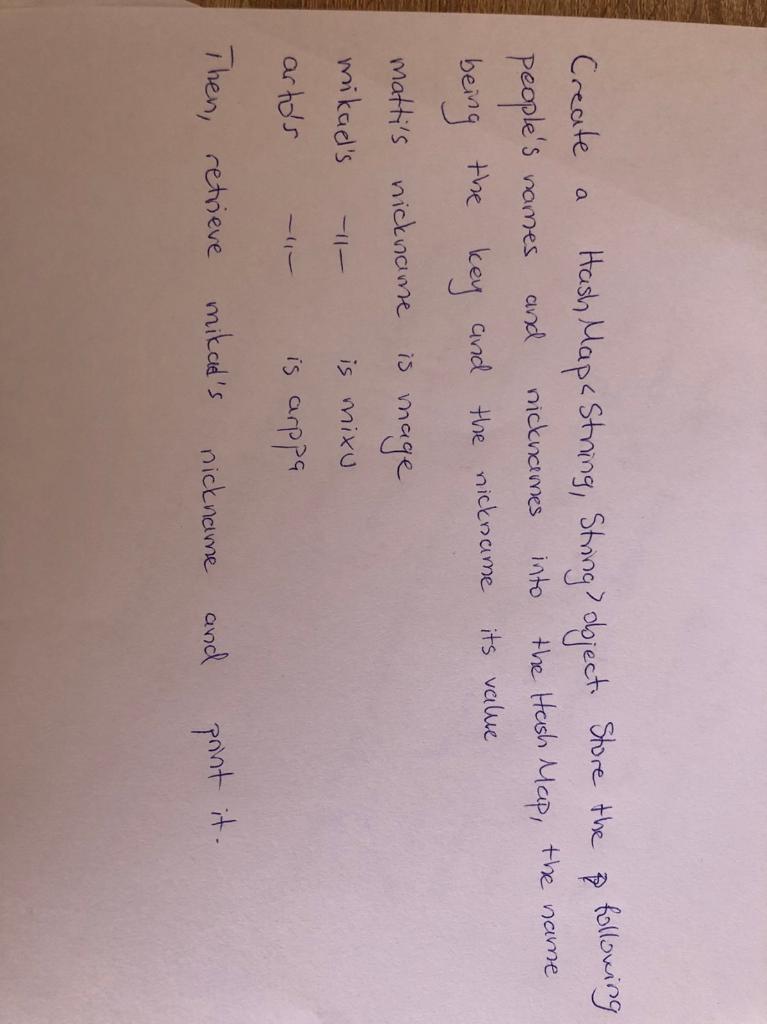 Create a HashMap<String, String> object. Store the following
people's names and nicknames into the HashMap, the name
being the key and the nickname its value
matti's nickname is mage
mikael's -||- is mixu
arto's -||- is arppa
Then, retrieve mikael's nickname and print it.